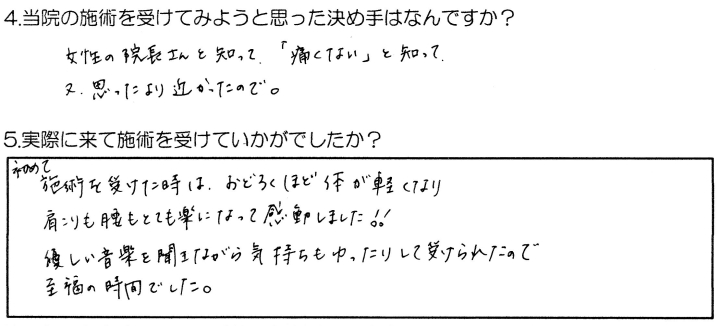 4.当院の施術を受けてみようと思った決め手はなんですか？
女性の院長さんと知って、「痛くない」と知って、
又、思ったより近かったので。
5.実際に来て施術を受けていかがでしたか？
初めて
施術を受けた時は、おどろくほど体が軽くなり
肩こりも腰もとても楽になって感動しました!!
優しい音楽を聞きながら気持ちもゆったりして受けられたので
至福の時間でした。